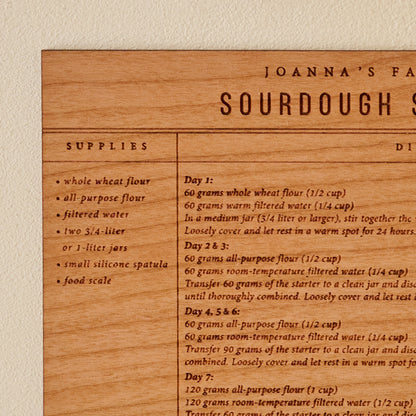 JOANNA'S FA
SOURDOUGH S
SUPPLIES
DI
• whole wheat flour
• all-purpose flour
• filtered water
• two 3/4-liter
or 1-liter jars
• small silicone spatula
• food scale
Day 1:
60 grams whole wheat flour (1/2 cup)
60 grams warm filtered water (1/4 cup)
In a medium jar (3/4 liter or larger), stir together the
Loosely cover and let rest in a warm spot for 24 hours.
Day 2 & 3:
60 grams all-purpose flour (1/2 cup)
60 grams room-temperature filtered water (1/4 cup)
Transfer 60 grams of the starter to a clean jar and disc
until thoroughly combined. Loosely cover and let rest i
Day 4, 5 & 6:
60 grams all-purpose flour (1/2 cup)
60 grams room-temperature filtered water (1/4 cup)
Transfer 90 grams of the starter to a clean jar and disc
combined. Loosely cover and let rest in a warm spot fo
Day 7:
120 grams all-purpose flour (1 cup)
120 grams room-temperature filtered water (1/2 cup)
Transfer 60 grams of the starter to a clean jar and disc